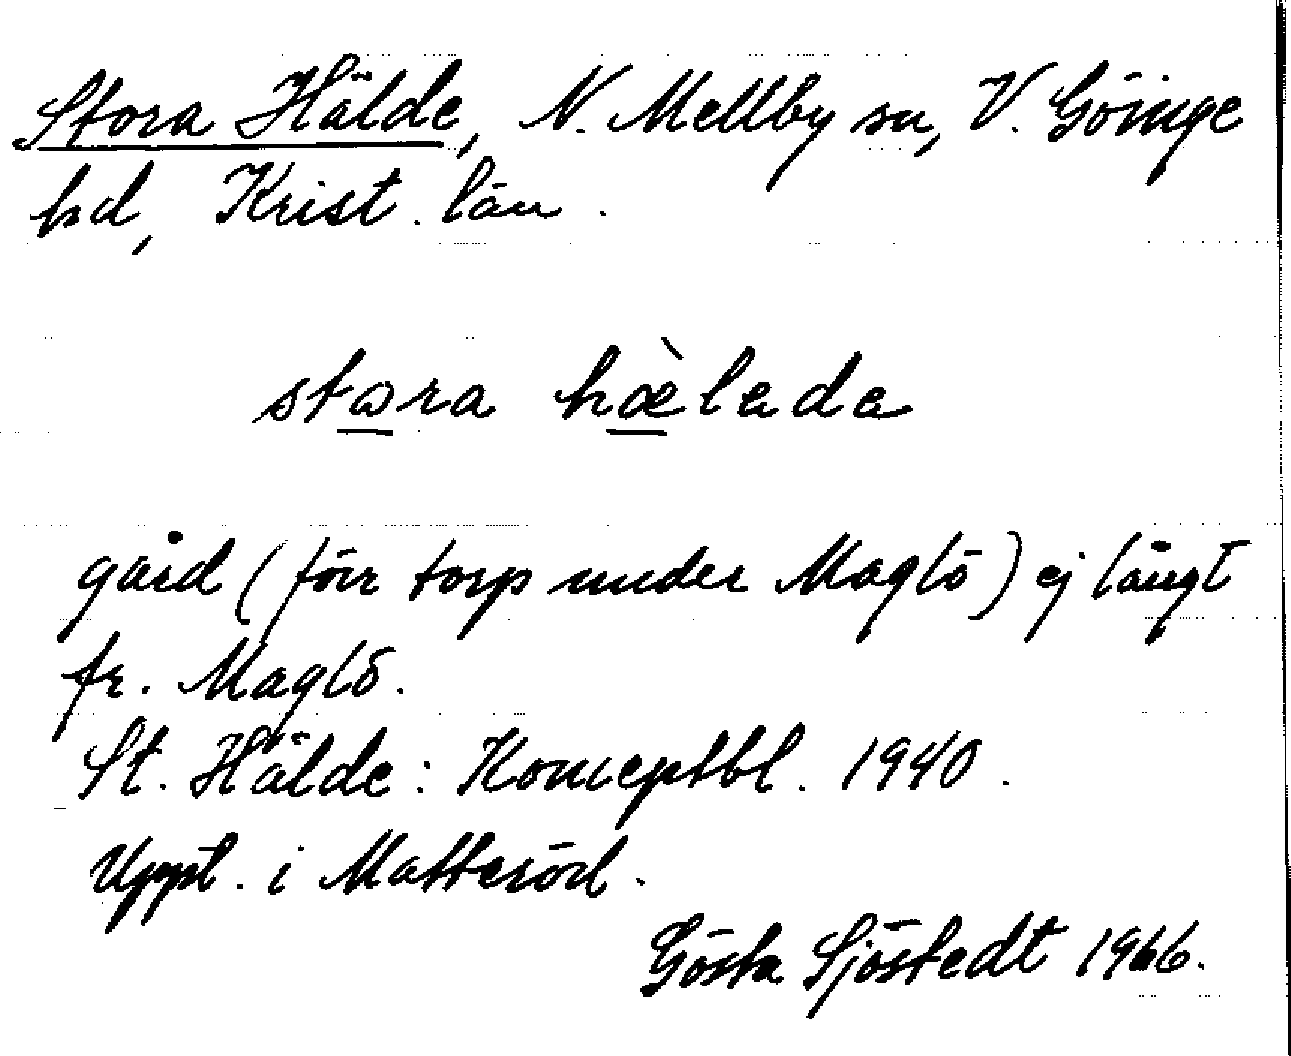 Stora Hälde, N. Mellby sn, V. Göinge
hd, Krist. län.
stɷra hæ̀lədə
gård (förr torp under Maglö) ej långt
fr. Maglö.
St. Hälde: Konceptbl. 1940.
Uppt. i Matteröd.
Gösta Sjöstedt 1966.